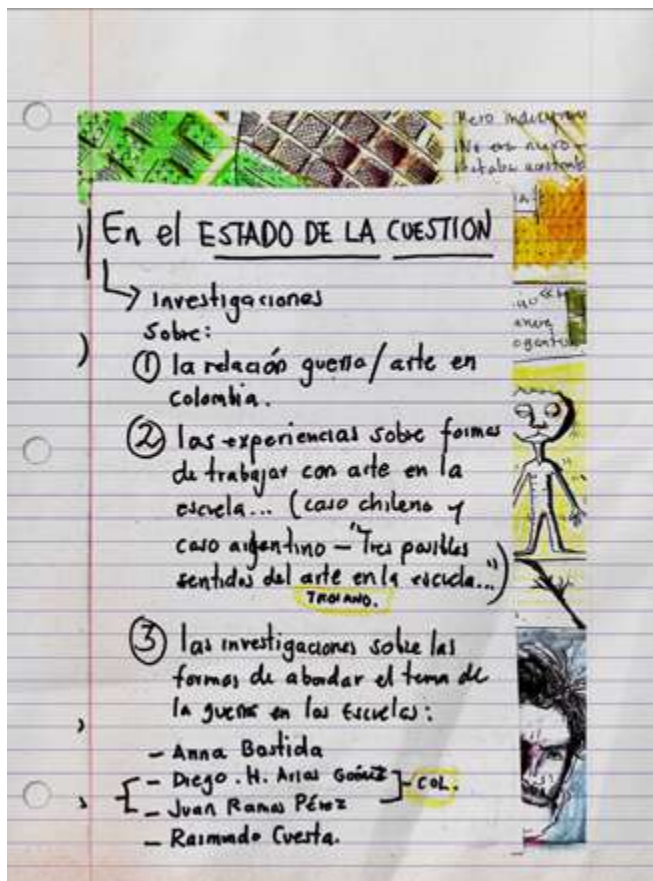 Pero
No era nuevo
En el ESTADO DE LA CUESTION
Investigaciones
Sobre:
① la relación guerra/arte en
Colombia.
② las experiencias sobre formas
de trabajar con arte en la
escuela... (caso chileno y
caso argentino — "Tres posibles
sentidos del arte en la escuela...")
TROIANO.
③ las investigaciones sobre las
formas de abordar el tema de
la guerra en las Escuelas:
- Anna Bastida
- Diego . H. Arias Gómez
- Juan Ramos Pérez
COL.
- Raimundo Cuesta.